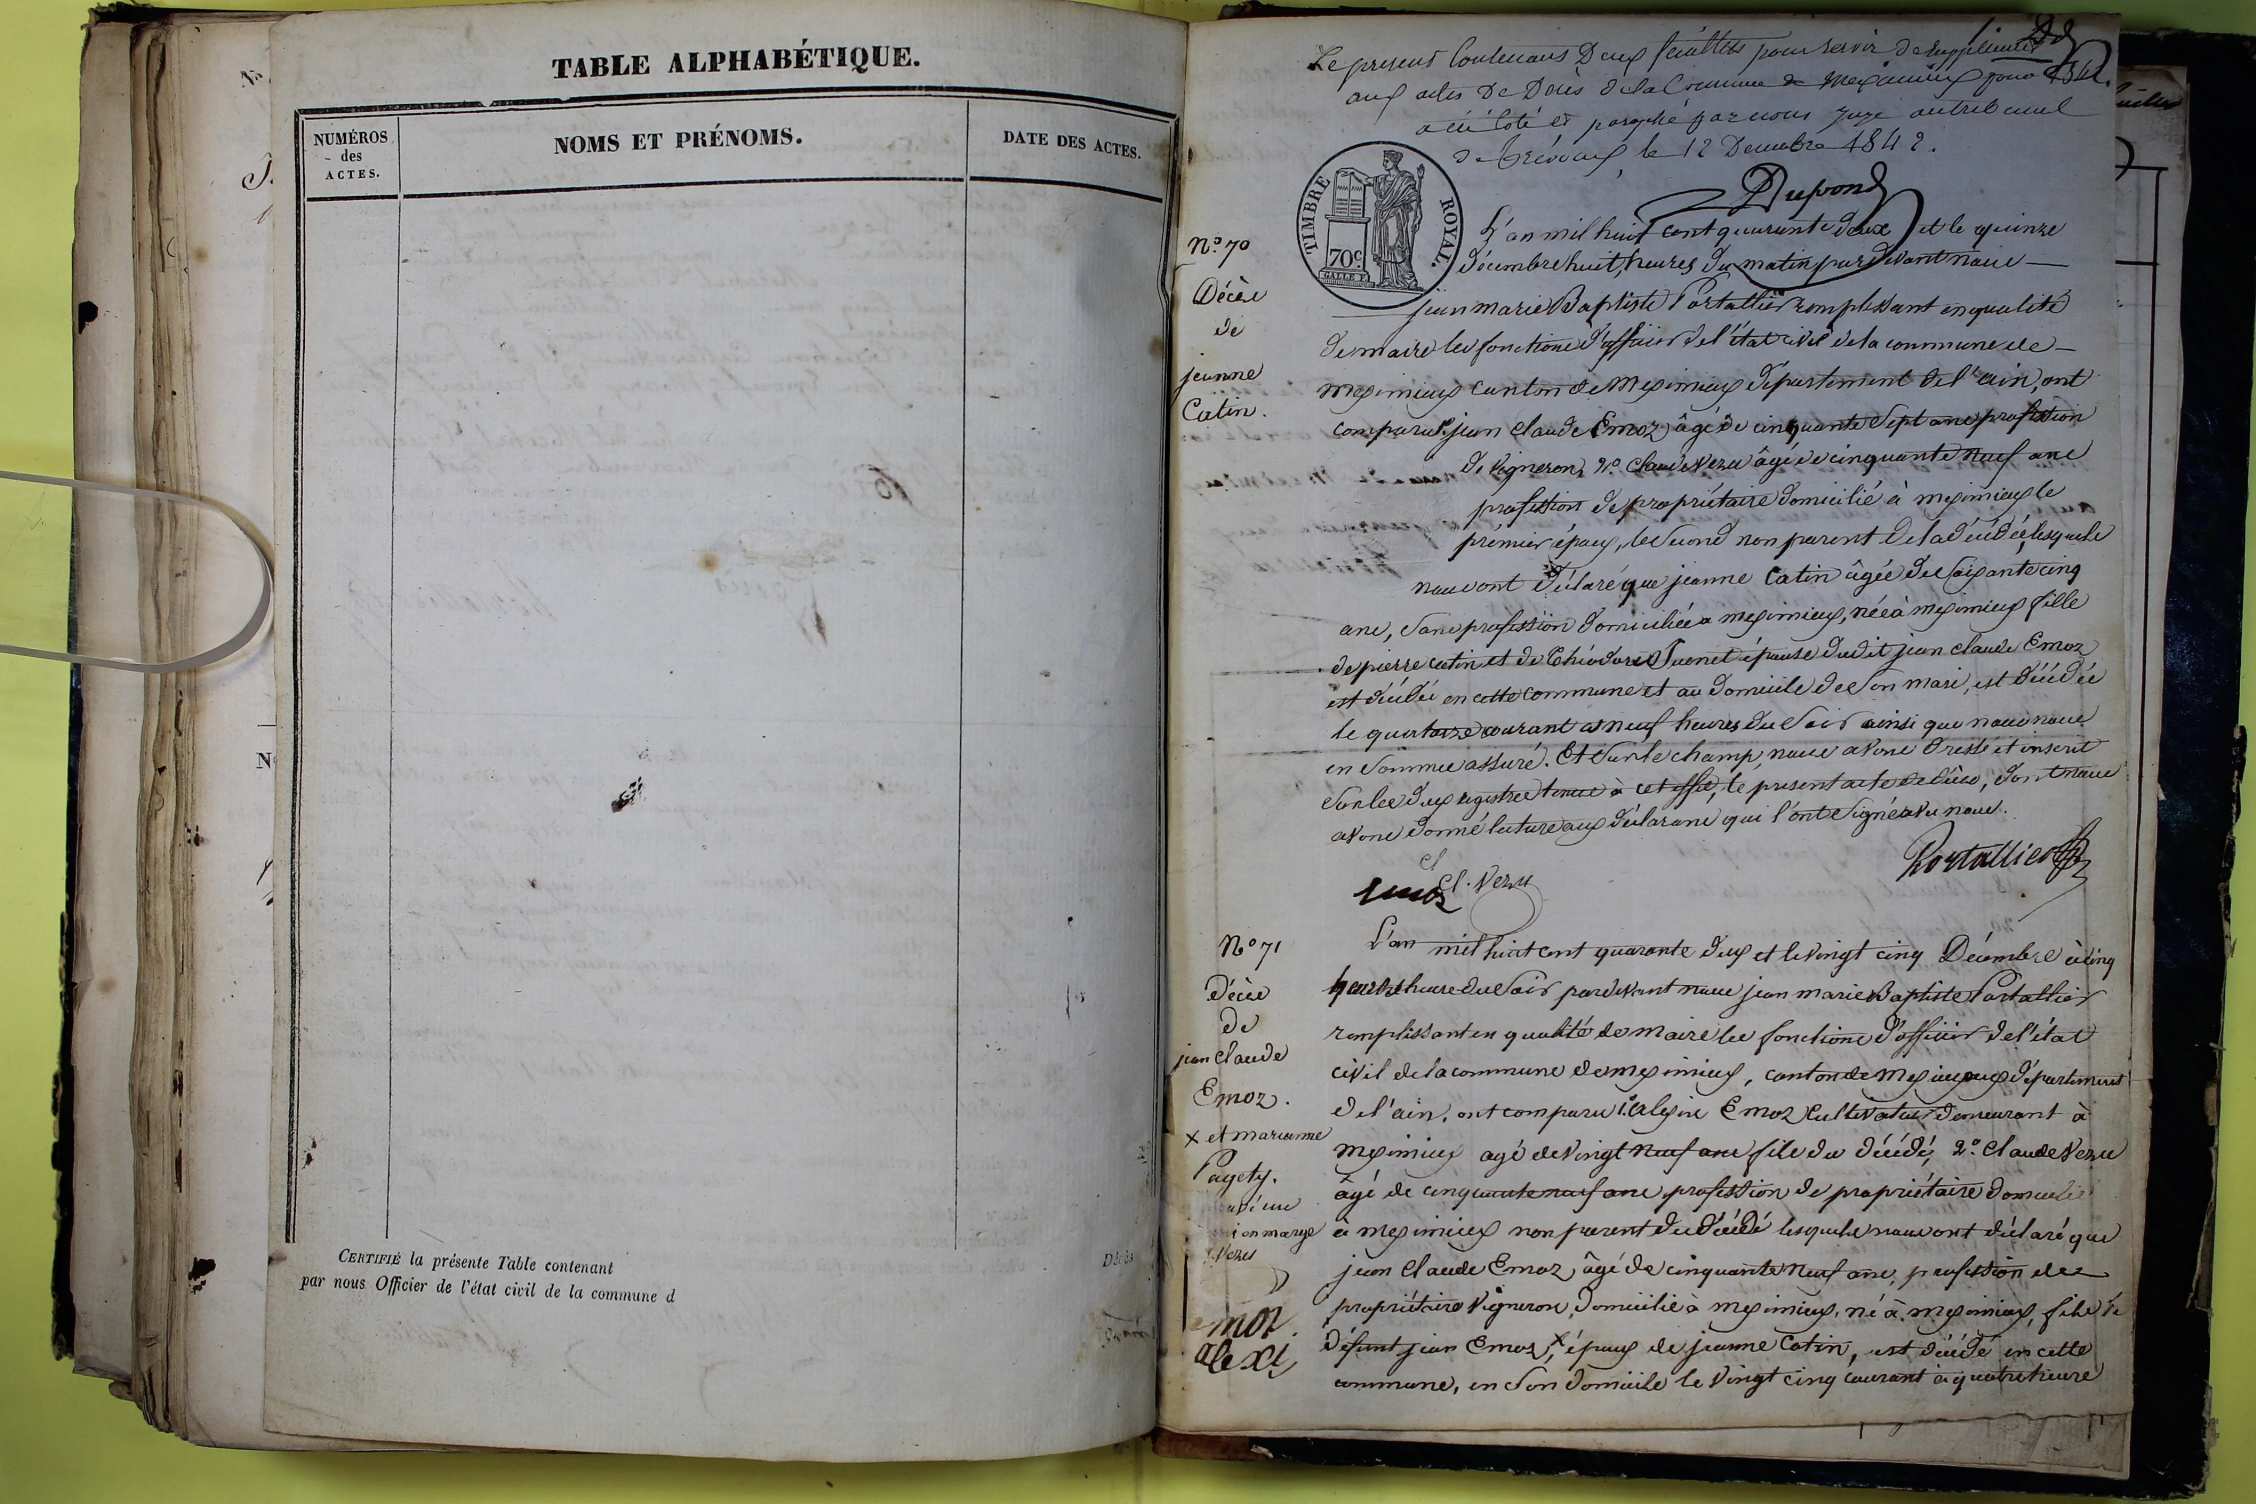 TABLE ALPHABÉTIQUE.
NUMÉROS
des
ACTES.
NOMS ET PRÉNOMS.
DATE DES ACTES.
CERTIFIÉ la présente Table contenant
par nous Officier de l'état civil de la commune d
Le present Contenant Deux feuillets pour servir de supplement
aux actes de Décès de la Commune de Meximieux pour 1842.
a été coté et paraphé par nous Juge au tribunal
de Trévoux, le 12 Decembre 1842.
Dupond
TIMBRE ROYAL.
70c.
N.o 70
Décès
de
jeanne
Catin.
L'an mil huit cent quarante deux et le quinze
décembre huit heures du matin par devant nous
jean marie Baptiste Portallier remplissant en qualité
de maire les fonctions d'officier de l'état civil de la commune de
meximieux canton de Meximieux département de l'ain, ont
comparu 1.o jean claude Emoz âgé de cinquante sept ans profession
de vigneron, 2.o claude Vezu âgé de cinquante neuf ans
profession de propriétaire domicilié à meximieux le
prémier époux, le second non parent de la décédée, lesquels
nous ont déclaré que jeanne Catin âgée de soixante cinq
ans, sans profession domiciliée a meximieux, née à meximieux fille
de pierre catin et de Théodore Juenet épouse dudit jean claude Emoz
est décédée en cette commune et au domicile de son mari, est décédée
le quatorze courant as neuf heures du soir ainsi que nous nous
en sommes assuré. Et sur le champ, nous avons dressé et inscrit
sur les deux registres tenus à cet effet, le present acte de décès, dont nous
avons donné lecture aux déclarans qui l'ont signé avec nous.
Portallier
cl
Emoz
Cl. Vezu
N.o 71
Décès
de
jean Claude
Emoz.
L'an mil huit cent quarante deux et le vingt cinq Décembre à cinq
heure du soir pardevant nous jean marie Baptiste Portallier
remplissant en qualité de maire les fonctions d'officier de l'état
civil de la commune de meximieux, canton de Meximieux département
de l'ain, ont comparu 1.o alexis Emoz cultivateur demeurant à
meximieux agé de vingt neuf ans fils du décédé, 2.o claude Vezu
âgé de cinquante neuf ans profession de propriétaire domicilié
à meximieux non parent du décédé lesquels nous ont déclaré que
jean claude Emoz âgé de cinquante neuf ans, profession de
propriétaire vigneron, domicilié à meximieux, né à meximieux, fils de
défunt jean Emoz, X époux de jeanne Catin, est décédé en cette
commune, en son domicile le vingt cinq courant à quatre heure
X et marianne
Pagety.
en marge
Vezu
emoz
alexi